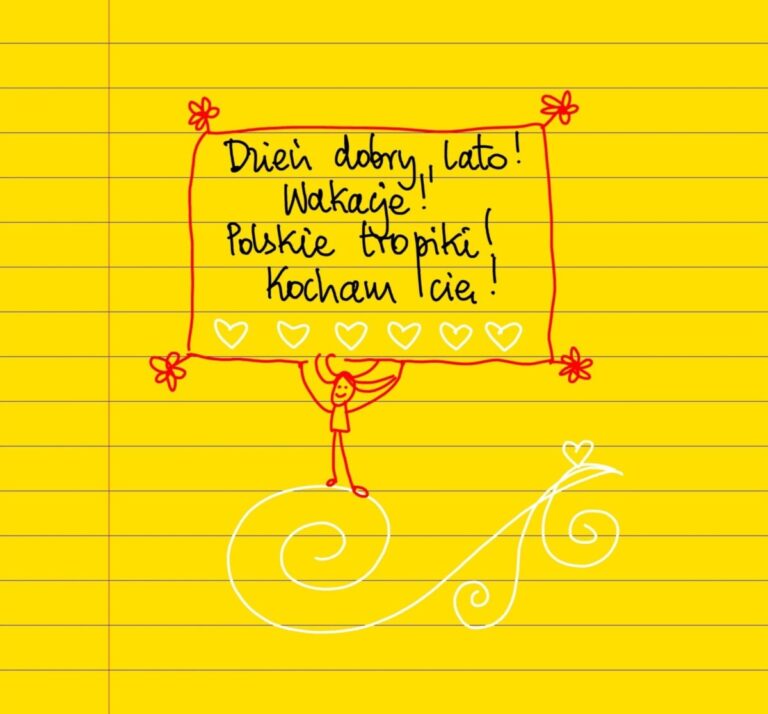 Dzień dobry, lato!
Wakacje!
Polskie tropiki!
Kocham cię!